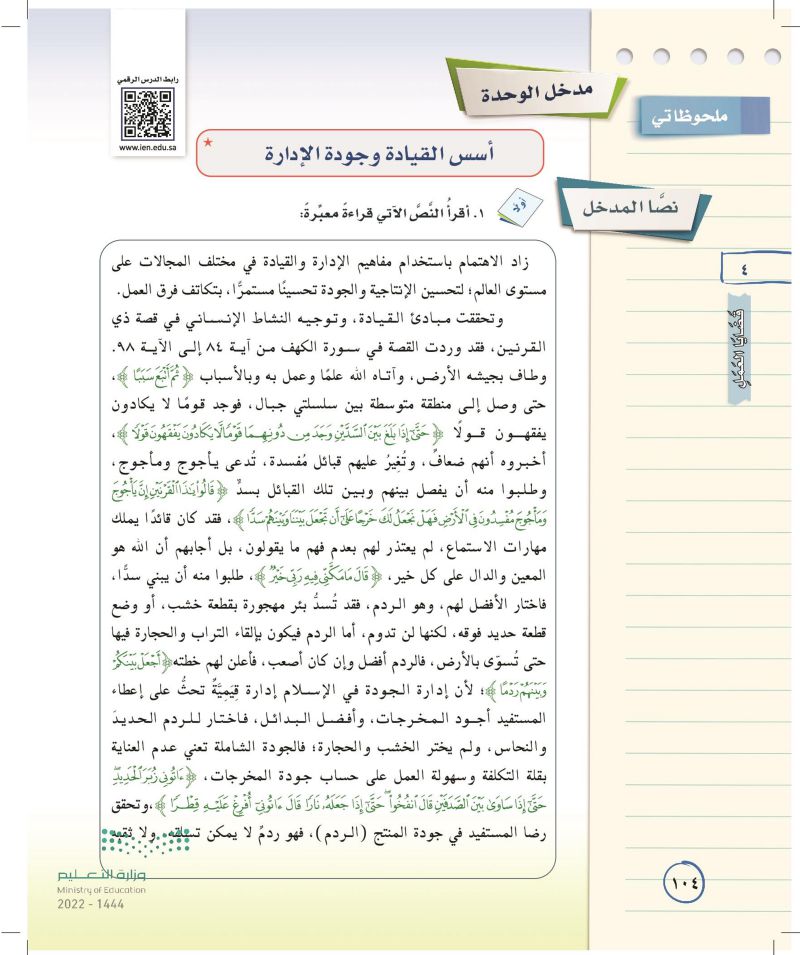 رابط الدرس الرقمي
www.ien.edu.sa
مدخل الوحدة
ملحوظاتي
أسس القيادة وجودة الإدارة
★
نصَّا المدخل
أولًا
١. أقرأُ النَّصَّ الآتي قراءةً معبِّرةً:
زاد الاهتمام باستخدام مفاهيم الإدارة والقيادة في مختلف المجالات على
مستوى العالم؛ لتحسين الإنتاجية والجودة تحسينًا مستمرًّا، بتكاتف فرق العمل.
وتحققت مبادئ القيادة، وتوجيه النشاط الإنساني في قصة ذي
القرنين، فقد وردت القصة في سورة الكهف من آية ٨٤ إلى الآية ٩٨.
وطاف بجيشه الأرض، وآتاه الله علمًا وعمل به وبالأسباب ﴿ثُمَّ أَتْبَعَ سَبَبًا﴾،
حتى وصل إلى منطقة متوسطة بين سلسلتي جبال، فوجد قومًا لا يكادون
يفقهون قولًا ﴿حَتَّىٰٓ إِذَا بَلَغَ بَيْنَ ٱلسَّدَّيْنِ وَجَدَ مِن دُونِهِمَا قَوْمًا لَّا يَكَادُونَ يَفْقَهُونَ قَوْلًا﴾،
أخبروه أنهم ضعافٌ، وتُغيرُ عليهم قبائل مُفسدة، تُدعى يأجوج ومأجوج،
وطلبوا منه أن يفصل بينهم وبين تلك القبائل بسدٍّ ﴿قَالُوا۟ يَٰذَا ٱلْقَرْنَيْنِ إِنَّ يَأْجُوجَ
وَمَأْجُوجَ مُفْسِدُونَ فِي ٱلْأَرْضِ فَهَلْ نَجْعَلُ لَكَ خَرْجًا عَلَىٰٓ أَن تَجْعَلَ بَيْنَنَا وَبَيْنَهُمْ سَدًّا﴾، فقد كان قائدًا يملك
مهارات الاستماع، لم يعتذر لهم بعدم فهم ما يقولون، بل أجابهم أن الله هو
المعين والدال على كل خير، ﴿قَالَ مَا مَكَّنِّي فِيهِ رَبِّي خَيْرٌ﴾، طلبوا منه أن يبني سدًّا،
فاختار الأفضل لهم، وهو الردم، فقد تُسدُّ بئر مهجورة بقطعة خشب، أو وضع
قطعة حديد فوقه، لكنها لن تدوم، أما الردم فيكون بإلقاء التراب والحجارة فيها
حتى تُسوّى بالأرض، فالردم أفضل وإن كان أصعب، فأعلن لهم خطته ﴿أَجْعَلْ بَيْنَكُمْ
وَبَيْنَهُمْ رَدْمًا﴾؛ لأن إدارة الجودة في الإسلام إدارة قِيَمِيَّةٌ تحثُّ على إعطاء
المستفيد أجـود المـخرجات، وأفضل البدائل، فاختار للردم الحديدَ
والنحاس، ولم يختر الخشب والحجارة؛ فالجودة الشاملة تعني عدم العناية
بقلة التكلفة وسهولة العمل على حساب جودة المخرجات، ﴿ءَاتُونِي زُبَرَ ٱلْحَدِيدِ
حَتَّىٰٓ إِذَا سَاوَىٰ بَيْنَ ٱلصَّدَفَيْنِ قَالَ ٱنفُخُوا۟ حَتَّىٰٓ إِذَا جَعَلَهُۥ نَارًا قَالَ ءَاتُونِىٓ أُفْرِغْ عَلَيْهِ قِطْرًا﴾،وتحقق
رضا المستفيد في جودة المنتج (الردم)، فهو ردمٌ لا يمكن تسلقه ولا ثقبه
٤
قضايا العمل
وزارة التعليم
Ministry of Education
2022 - 1444
١٠٤